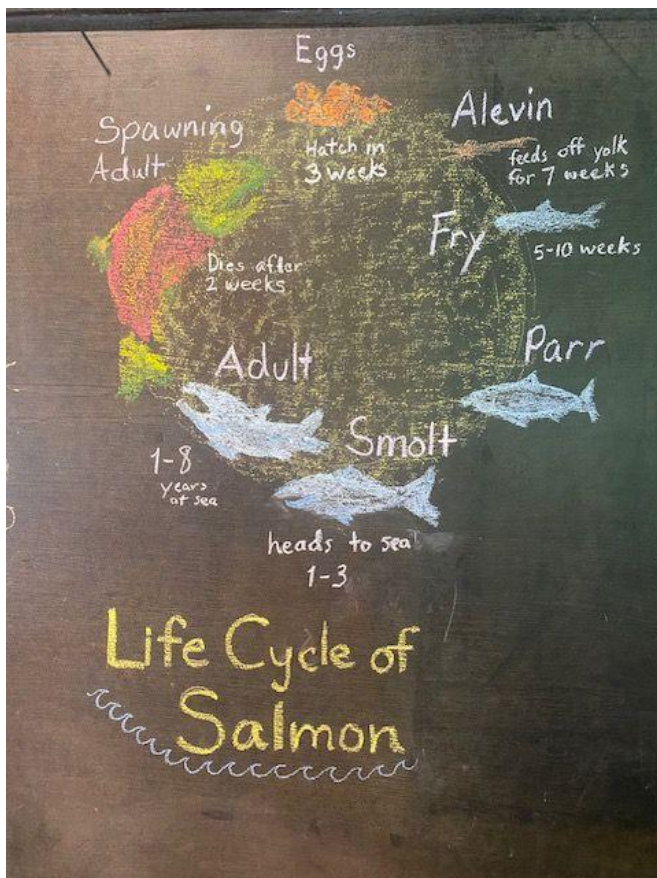 Eggs
Hatch in
3 weeks
Alevin
feeds off yolk
for 7 weeks
Fry
5-10 weeks
Parr
Smolt
heads to sea
1-3
Adult
1-8
years
at sea
Spawning
Adult
Dies after
2 weeks
Life Cycle of
Salmon